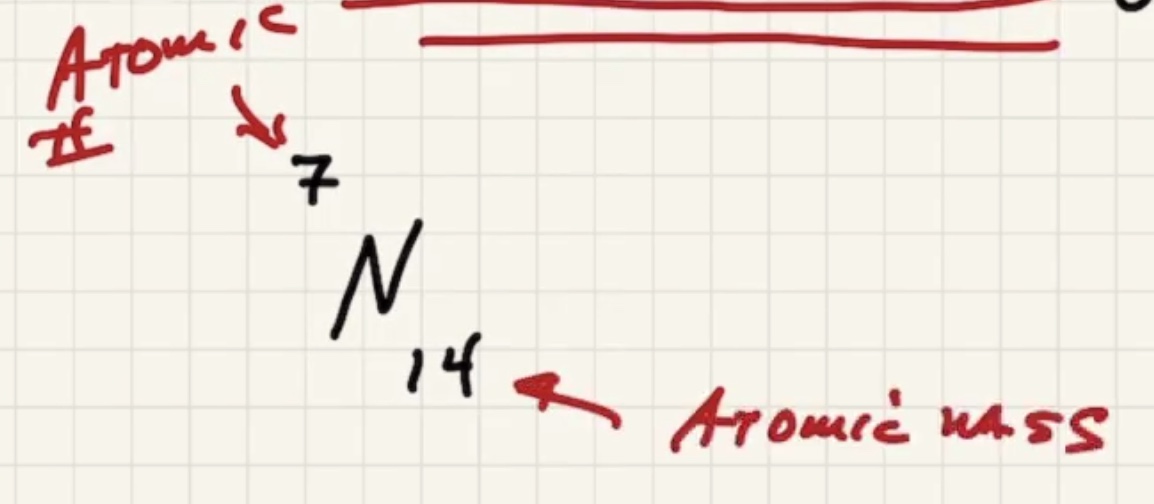 Atomic
#
7
N
14
Atomic mass